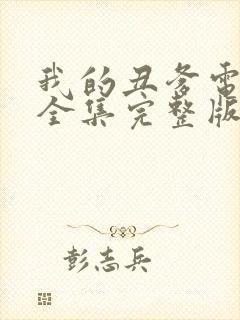 我的丑爹电
全集完整版
彭志兵